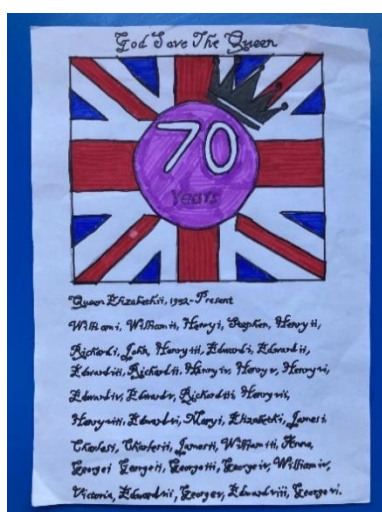 God Save The Queen
70
Years
Queen Elizabeth ii, 1952-Present
William i, William ii, Henry i, Stephen, Henry ii,
Richard i, John, Henry iii, Edward i, Edward ii,
Edward iii, Richard ii, Henry iv, Henry v, Henry vi,
Edward iv, Edward v, Richard iii, Henry vii,
Henry viii, Edward vi, Mary i, Elizabeth i, James i
Charles i, Charles ii, James ii, William iii, Anne,
George i George ii, George iii, George iv, William iv,
Victoria, Edward vii, George v, Edward viii, George vi.